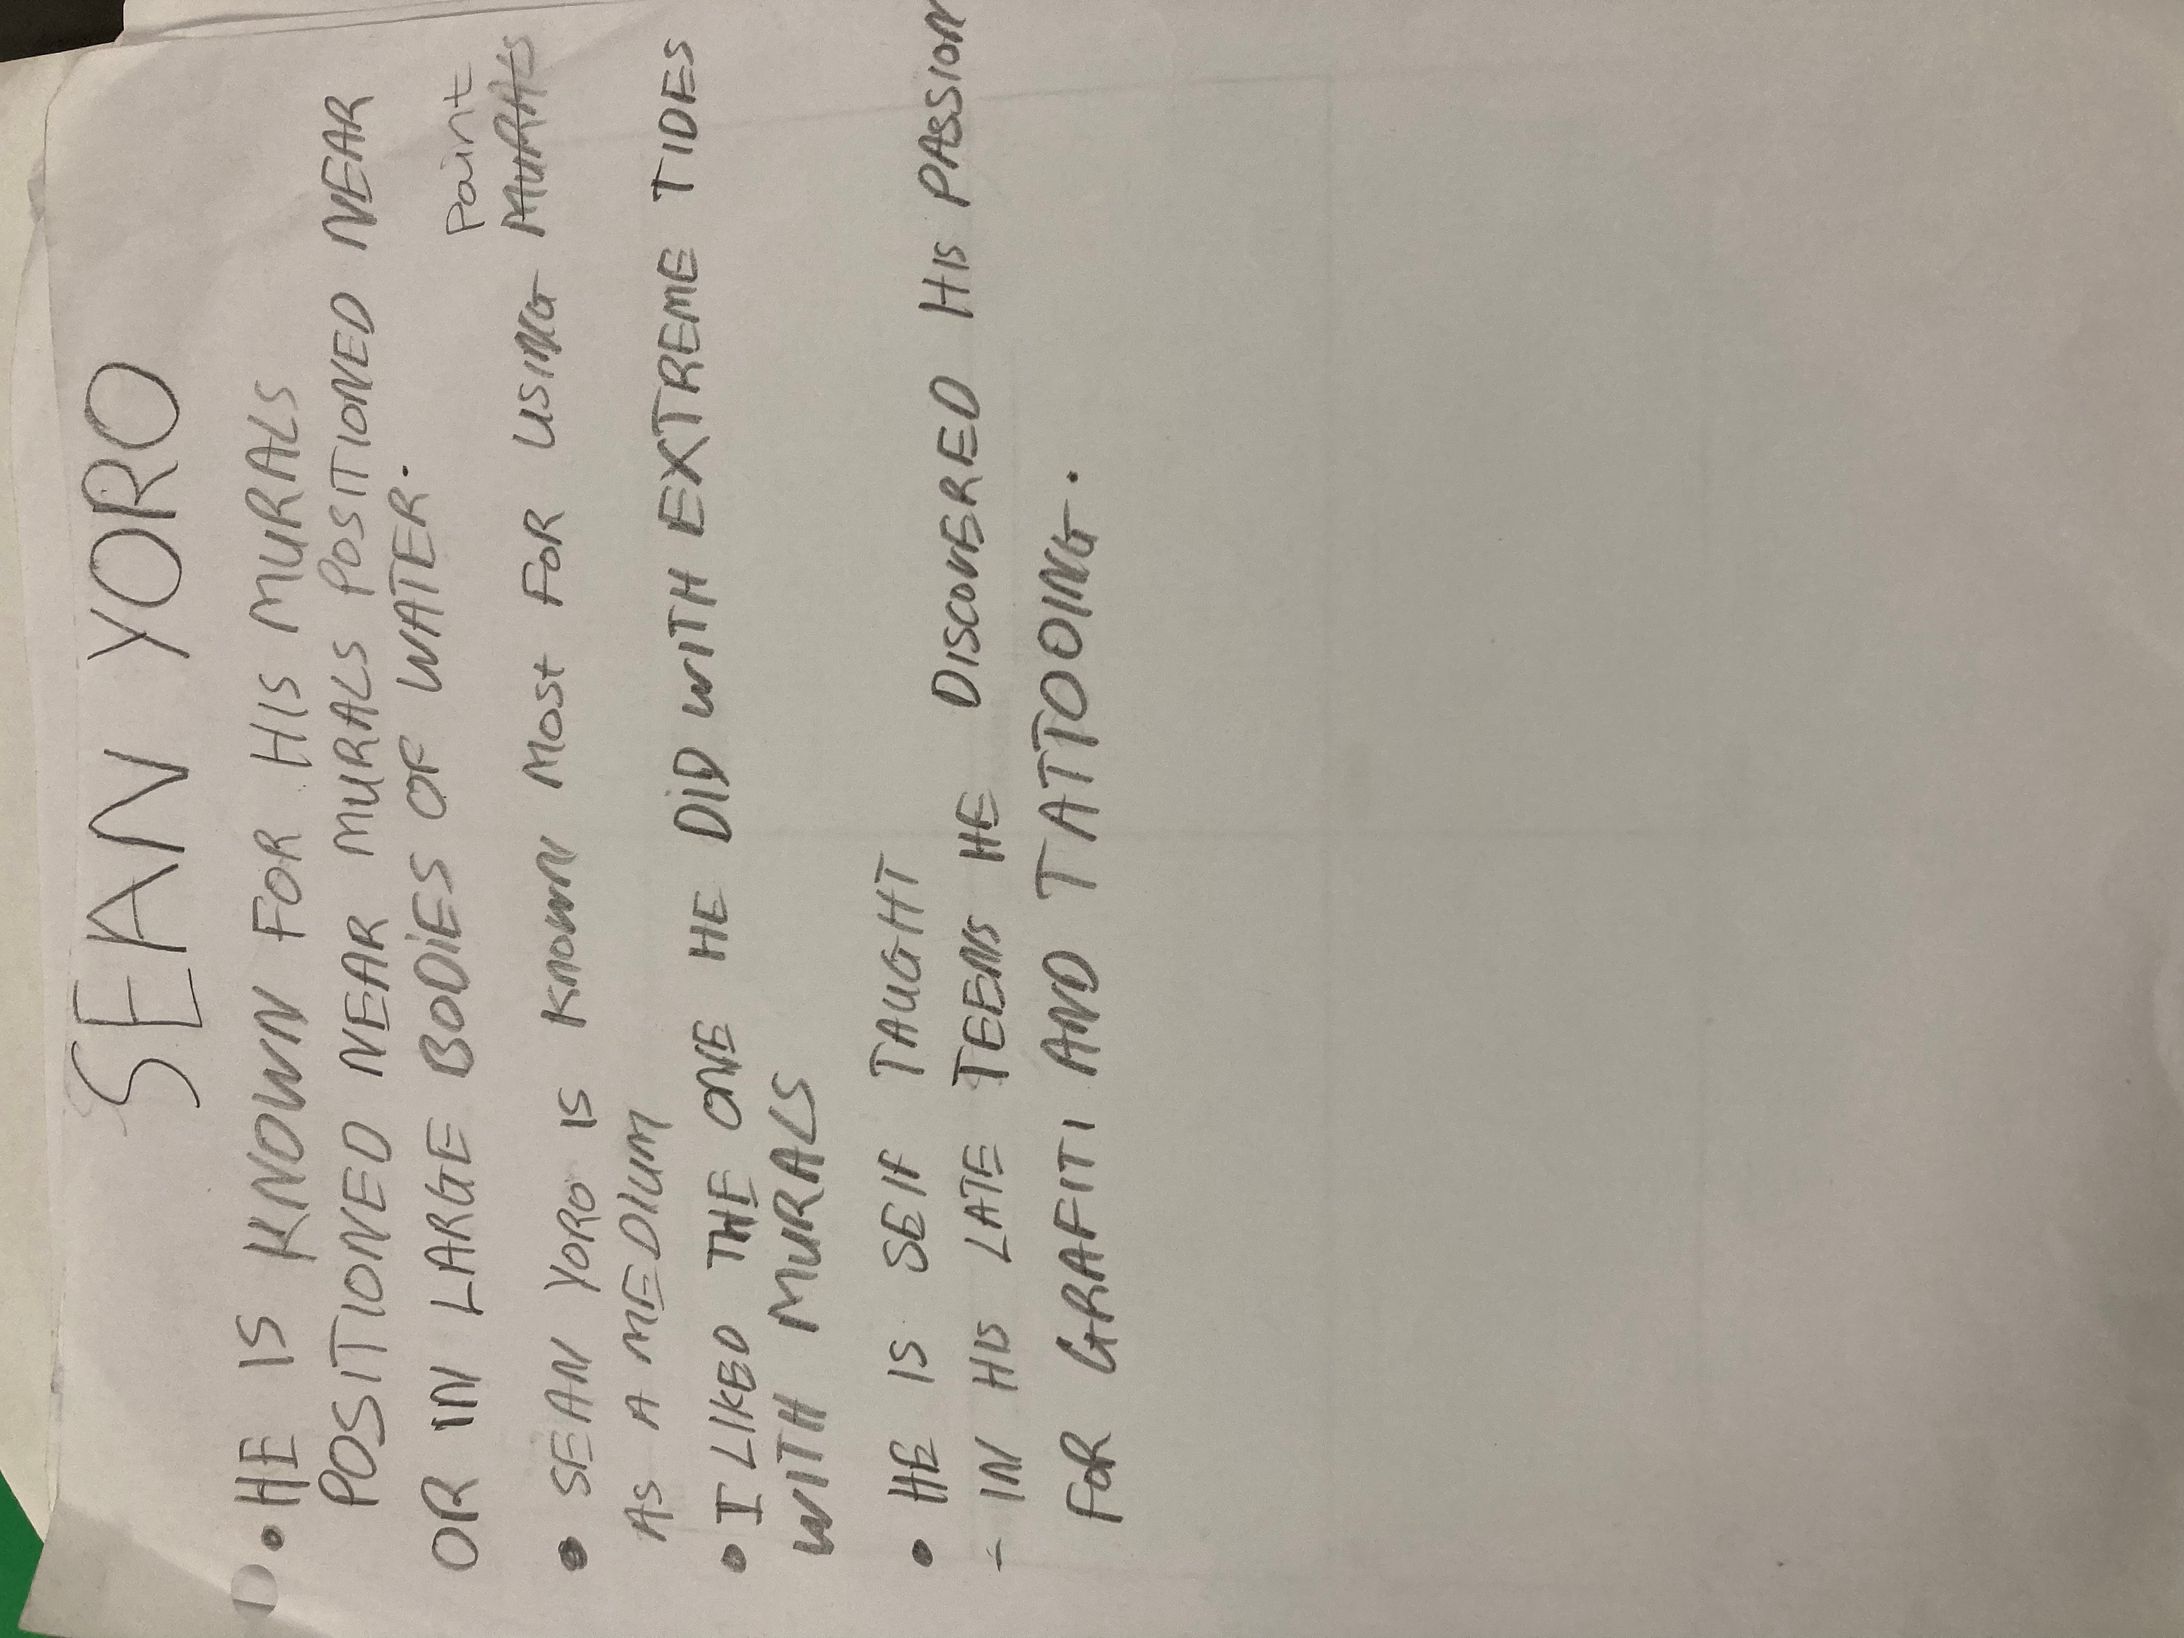 SEAN YORO
• HE IS KNOWN FOR HIS MURALS
POSITIONED NEAR MURALS POSITIONED NEAR
OR IN LARGE BODIES OF WATER.
Paint
• SEAN YORO IS KNOWN MOST FOR USING MURALS
AS A MEDIUM
• I LIKED THE ONE HE DID WITH EXTREME TIDES
WITH MURALS
• HE IS SELF TAUGHT
- IN HIS LATE TEENS HE DISCOVERED HIS PASSION
FOR GRAFITI AND TATTOOING.